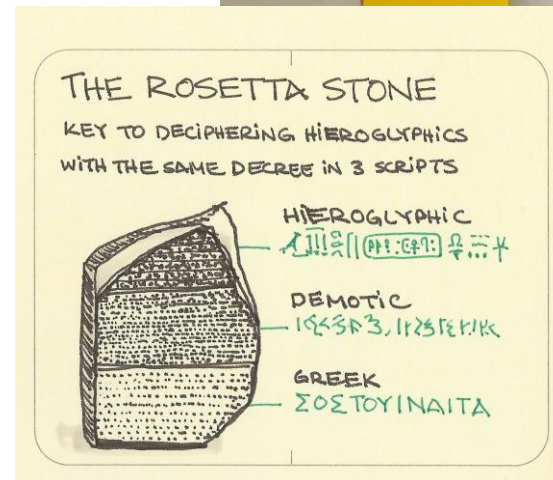 THE ROSETTA STONE
KEY TO DECIPHERING HIEROGLYPHICS
WITH THE SAME DECREE IN 3 SCRIPTS
HIEROGLYPHIC
DEMOTIC
GREEK
ΣΟΣΤΟΥΙΝΑΙΤΑ